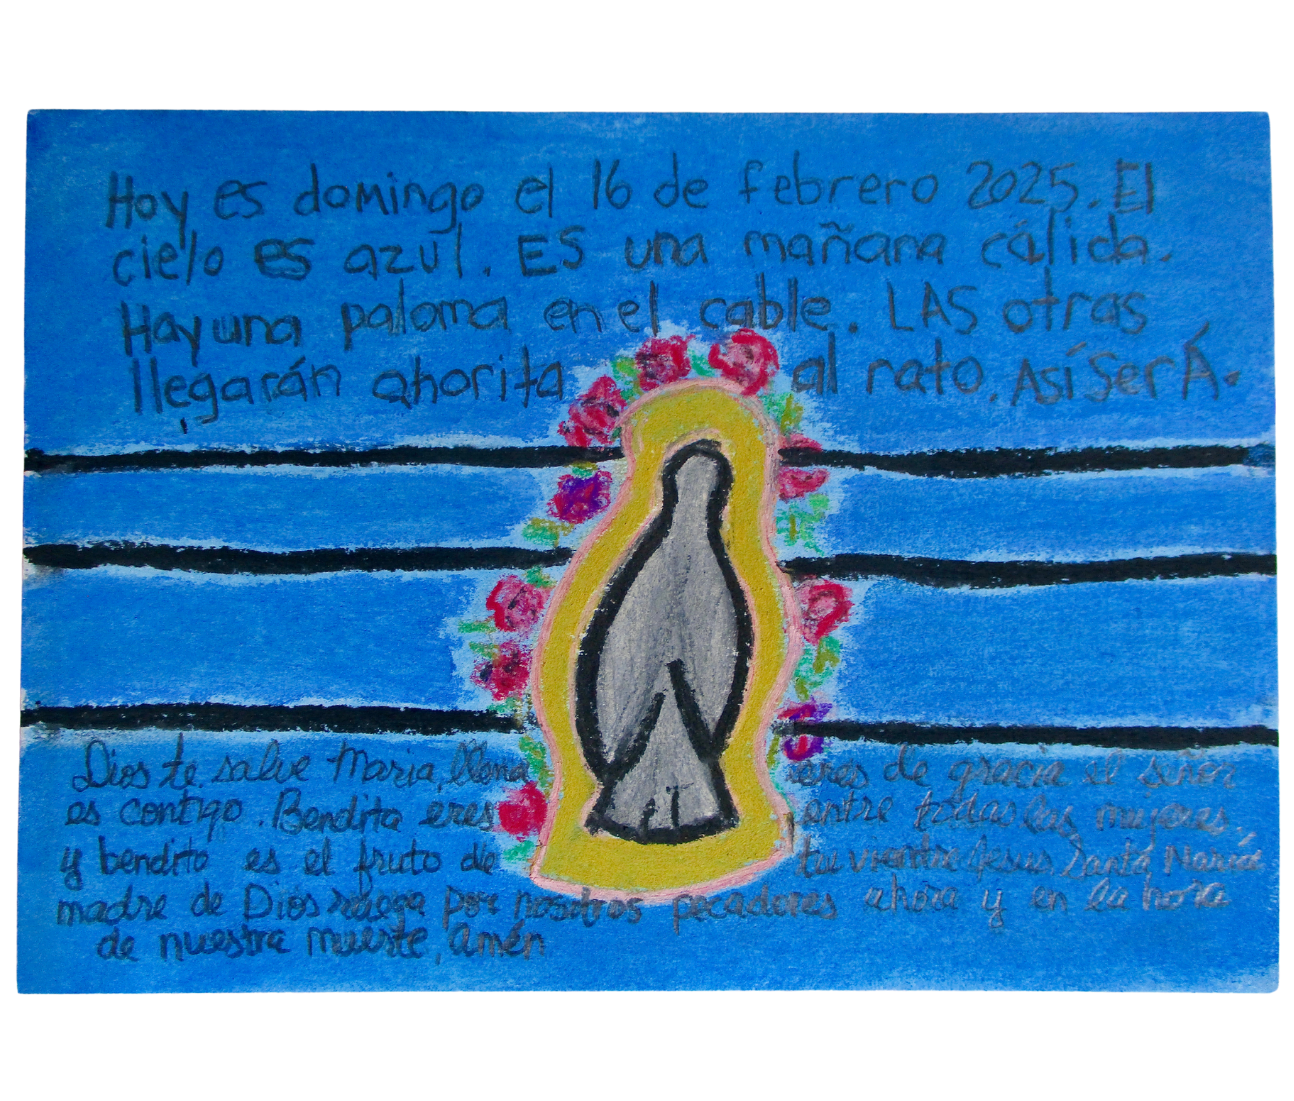 Hoy es domingo el 16 de febrero 2025. El
cielo es azul. ES una mañana cálida.
Hay una paloma en el cable. LAS otras
llegarán ahorita al rato. Así SerÁ.
Dios te salve Maria, llena eres de gracia el señor
es contigo. Bendita eres entre todas las mujeres,
y bendito es el fruto de tu vientre Jesus, Santa Maria
madre de Dios ruega por nosotros pecadores ahora y en la hora
de nuestra muerte, amén